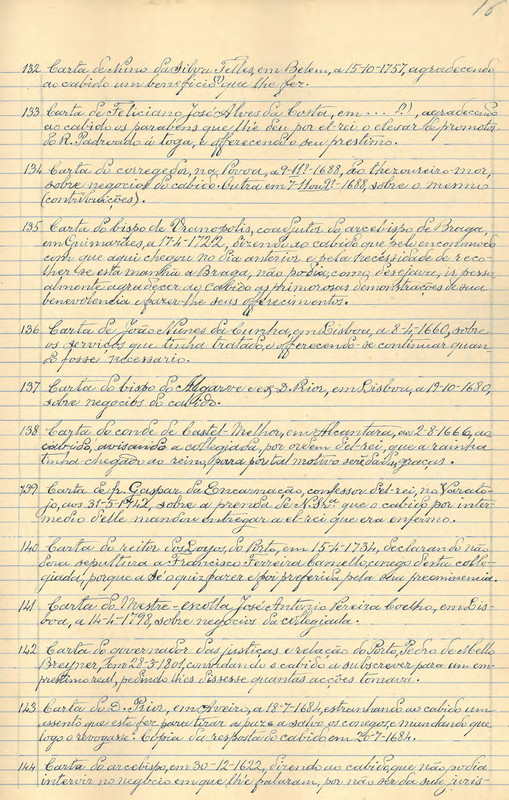 16
132 Carta de Nuno da Silva Telles, em Belem, a 15-10-1757, agradecendo
ao cabido um beneficio (?) que lhe fez.
133 Carta de Feliciano José Alves da Costa, em .... (?), agradecendo
ao cabido os parabens que lhe deu por el-rei o elevar de promotor
do R. Padroado à toga, e offerecendo o seu prestimo.
134 Carta do corregedor, na Povoa, a 9-11º-1688, ao thezoureiro-mor,
sobre negocios do cabido. Outra em 7-11 ou 9º-1688, sobre o mesmo
(contribuições).
135 Carta do bispo de Uranopolis, coadjutor do arcebispo de Braga,
em Guimarães, a 17-4-1722, dizendo ao cabido que pelo encommodo
com que aqui chegou no dia anterior e pela necessidade de reco-
lher-se esta manhã a Braga, não podia, como desejava, ir pesso-
almente agradecer ao cabido as primorosas demonstrações de sua
benevolencia e fazer-lhe seus offerecimentos.
136 Carta de João Nunes da Cunha, em Lisboa, a 8-4-1660, sobre
os serviços que tinha tratado, e offerecendo-se continuar quan-
do fosse necessario.
137 Carta do bispo do Algarve e ex-D. Prior, em Lisboa, a 19-10-1680,
sobre negocios do cabido.
138 Carta do conde de Castel-Melhor, em Alcantara, a 2-8-1666, ao
cabido, avisando a collegiada, por ordem d'el-rei, que a rainha
tinha chegado ao reino, para por tal motivo serem dadas graças.
139 Carta de fr. Gaspar da Encarnação, confessor d'el-rei, no Varato-
jo, aos 31-5-1742, sobre a prenda de N. Srª que o cabido por inter-
medio d'elle mandou entregar a el-rei que era enfermo.
140 Carta do reitor dos Loyos, do Porto, em 15-4-1734, declarando não
dera sepultura a Francisco Ferreira Camello, conego d'esta colle-
giada, porque a Sé o quiz fazer e foi preferida pela sua preeminencia.
141 Carta do Mestre-escolla José Antonio Pereira Coelho, em Lis-
boa, a 14-4-1798, sobre negocios da collegiada.
142 Carta do governador das justiças e relação do Porto, Pedro de Mello
Breyner, em 28-3-1801, convidando o cabido a subscrever para um em-
prestimo real, pedindo lhes dissesse quantas acções tomava.
143 Carta do D. Prior, em Aveiro, a 18-7-1684, estranhando ao cabido um
assento que este fez para tirar a paz e a salvo os conegos, e mandando que
logo o revogasse. Copia da resposta do cabido em 20-7-1684.
144 Carta do arcebispo, em 30-12-1622, dizendo ao cabido, que não podia
intervir no negocio em que lhe fallaram, por não ser da sua juris-